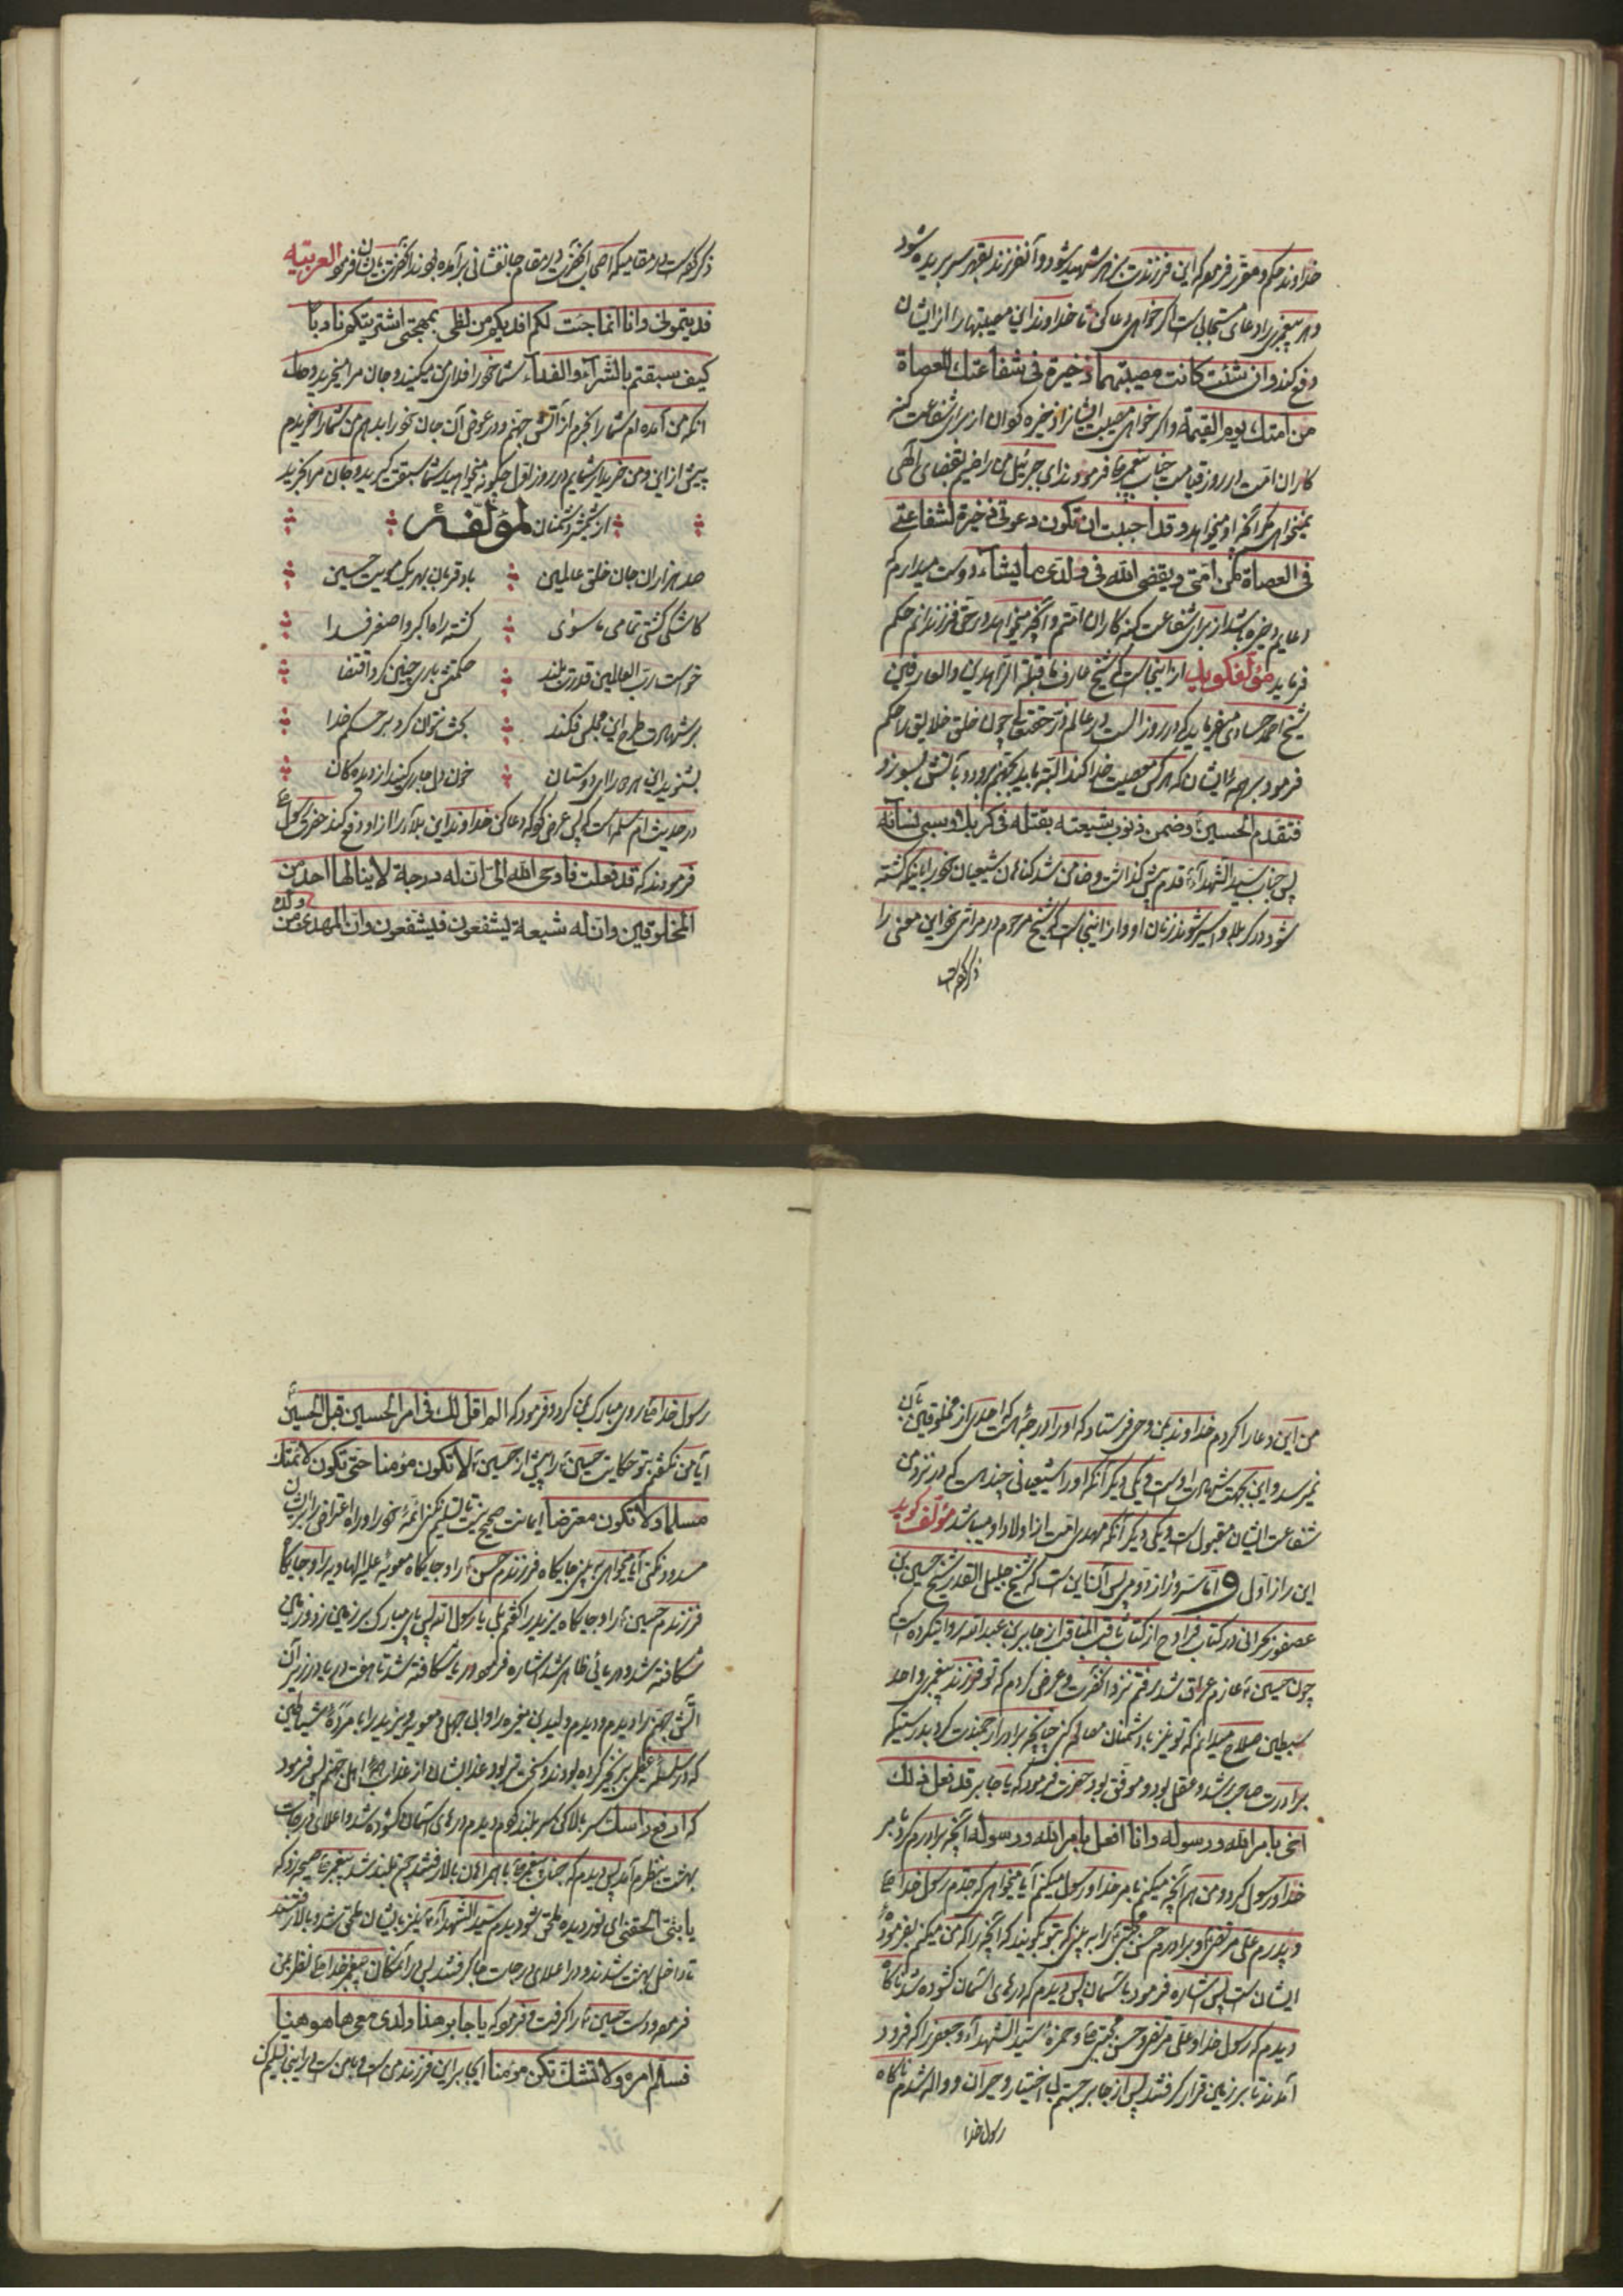 خداوند حکم و مقرر فرموده که این فرزندت بزهر شهید شود و آنفرزند بقهر سر بریده شود
و هر پیغمبری را دعای مستجابی است اگر خواهی دعا کن تا خداوند این مصیبتها را از ایشان
دفع کند وان شئت کانت مصیبتهما ذخیرة فی شفاعتك للعصاة
من امتك یوم القیمة و اگر خواهی مصیبت ایشان را ذخیره کن از برای شفاعت کنه
کاران امت در روز قیامت جناب پیغمبر فرمودند ای جبرئیل من راضیم بقضای الهی
نمیخواهم مگر آنچه او میخواهد وقد احببت ان تکون دعوتی ذخیرة لشفاعتی
فی العصاة من امتی ویقضی الله فی ولدی ما یشاء دوست میدارم که
دعایم ذخیره باشد از برای شفاعت کنه کاران امتم و آنچه میخواهد در حق فرزندانم حکم
فرماید مؤلف گوید از اینجاست که شیخ عارف قبلة الزاهدین والعارفین
شیخ احمد حساوی میفرماید که در روز الست در عالم ذر حقتعالی چون خلق خلایق را حکم
فرمود بر همه ایشان که هر کس معصیت خدا کند البته باید بجهنم برود و بآتش بسوزد
فتقدم الحسین وضمن ذنوب شیعته بقتله فی کربلا وسبی نسائه
پس جناب سید الشهداء قدم پیش گذاشت و ضامن شد گناهان شیعیان خود را باینکه کشته
شود در کربلا و اسیر شوند زنان او و از اینجاست که شیخ مرحوم در مراثی خود این معنی را
ذکر کرده است
ذکر کرده است در مقامیکه اصحاب آنحضرت در مقام جانفشانی برآمده بودند آنحضرت بایشان فرمود العربیّه
فدیتمونی وانا انما جئت لکم افدیکم من لظی بمهجتی اشتریتکم وانا
کیف سبقتم بالشراء والفداء شما خود را فدای من میکنید و جان مرا میخرید و حال
انکه من آمده ام شما را بخرم از آتش جهنم و در عوض آن جان خود را بدهم من شما را خریدم
پیش از این و من خریدار شمایم در روز اول چگونه میخواهید شما سبقت گیرید و جان مرا بخرید
از شر دشمنان لمؤلفه
صد هزاران جان خلق عالمین باد قربان بهر یک مویت حسین
کاشکی گشتی تمامی ماسوی کشته راه اکبر و اصغر فدا
خواست رب العالمین قدرت بلند حکمتش باری چنین کرد اقتضا
بر شهادت طرح این مجلس فکند بحث نتوان کرد بر حکم خدا
بشنوید این ماجرا ای دوستان خون دل جاری کنید از دیدگان
در حدیث ام سلمه است که پس عرض کرد که دعا کن خداوند این بلا را از او دفع کند حضرت رسول
فرمودند که قد فعلت فاوحی الله الی ان له درجة لا ینالها احد من
المخلوقین وان له شیعة یشفعون فیشفعون وان المهدی من ولده
من این دعا را کردم خداوند بمن وحی فرستاد که او را درجه هست که احدی از مخلوقین بآن
نمیرسد و این بجهت شهادت اوست و یکی دیگر آنکه او را شیعیانی چند هست که در نزد من
شفاعت ایشان مقبول است و یکی دیگر آنکه مهدی امت از اولاد او میباشد مؤلف گوید
این راز اولی و اما سر و راز دوم پس آن این است که شیخ جلیل القدر شیخ حسین بن
عصفور بحرانی در کتاب فوادح از کتاب ثاقب المناقب از جابر بن عبدالله روایت کرده است که
چون حسین عازم عراق شد رفتم نزد آنحضرت و عرض کردم که تو فرزند پیغمبر و احد
سبطین صلاح میدانم که تو نیز با دشمنان مصالحه کنی چنانچه برادر ارجمندت کرد بدرستیکه
برادرت صاحب رشد و عقل بود و موفق بود حضرت فرمود که یا جابر قد فعل ذلك
اخی بامر الله ورسوله وانا افعل بامر الله ورسوله آنچه برادرم کرد بامر
خدا و رسول کرد و من هم آنچه میکنم بامر خدا و رسول میکنم آیا میخواهی که جدم رسول خدا
و پدرم علی مرتضی و برادرم حسن مجتبی را به بینی که بتو گویند که آنچه را که من میکنم بفرموده
ایشان است پس اشاره فرمود بآسمان پس دیدم که درهای آسمان گشوده شد ناگاه
دیدم که رسول خدا و علی مرتضی و حسن مجتبی و حمزه سید الشهداء و جعفر را که فرود
آمدند تا بر زمین قرار گرفتند پس از جا برجستم بی اختیار و حیران و واله شدم ناگاه
رسول خدا
رسول خدا روی مبارک بمن کرد و فرمود که الم اقل لك فی امر الحسین قبل الحسین
آیا من نگفتم بتو حکایت حسین را پیش از حسین لا تکون مؤمنا حتی تکون لائمتك
مسلما ولا تکون معترضا ایمانت صحیح نیست تا تسلیم نکنی ائمه خود را و راه اعتراض را بر ایشان
مسدود نکنی آیا میخواهی به بینی جایگاه فرزندم حسن را و جایگاه معویه علیه الهاویه را و جایگاه
فرزندم حسین را و جایگاه یزید را گفتم بلی یا رسول الله پس پای مبارک بر زمین زد و زمین
شکافته شد و دریائی ظاهر شد اشاره فرمود دریا شکافته شد تا هفت دریا و در زیر آن
آتش جهنم را دیدم و دیدم ولید بن مغیره را و ابی جهل و معویه و یزید را با مرده شیاطین
که در سلسله عظیمی بزنجیر کرده بودند و سخت تر بود عذاب ایشان از عذاب همه اهل جهنم پس فرمود
که ارفع راسك سر بالا کن سر بلند کردم دیدم درهای آسمان گشوده شد و اعلای درجات
بهشت بنظرم آمد پس دیدم که جناب پیغمبر با همراهان بالا رفتند چون بلند شد پیغمبر صیحه زد که
یا بنی الحقنی ای نور دیده ملحق شو دیدم سید الشهداء نیز بایشان ملحق شد و بالا رفتند
تا داخل بهشت شدند و در اعلای درجات جا گرفتند پس در آنمکان پیغمبر خدا نظر بمن
فرمود و دست حسین را گرفت و فرمود که یا جابر هذا ولدی معی هاهوهنا
فسلم امره ولا تشك تکن مؤمنا ای جابر این فرزند من است و با من است در اینجا تسلیم کن